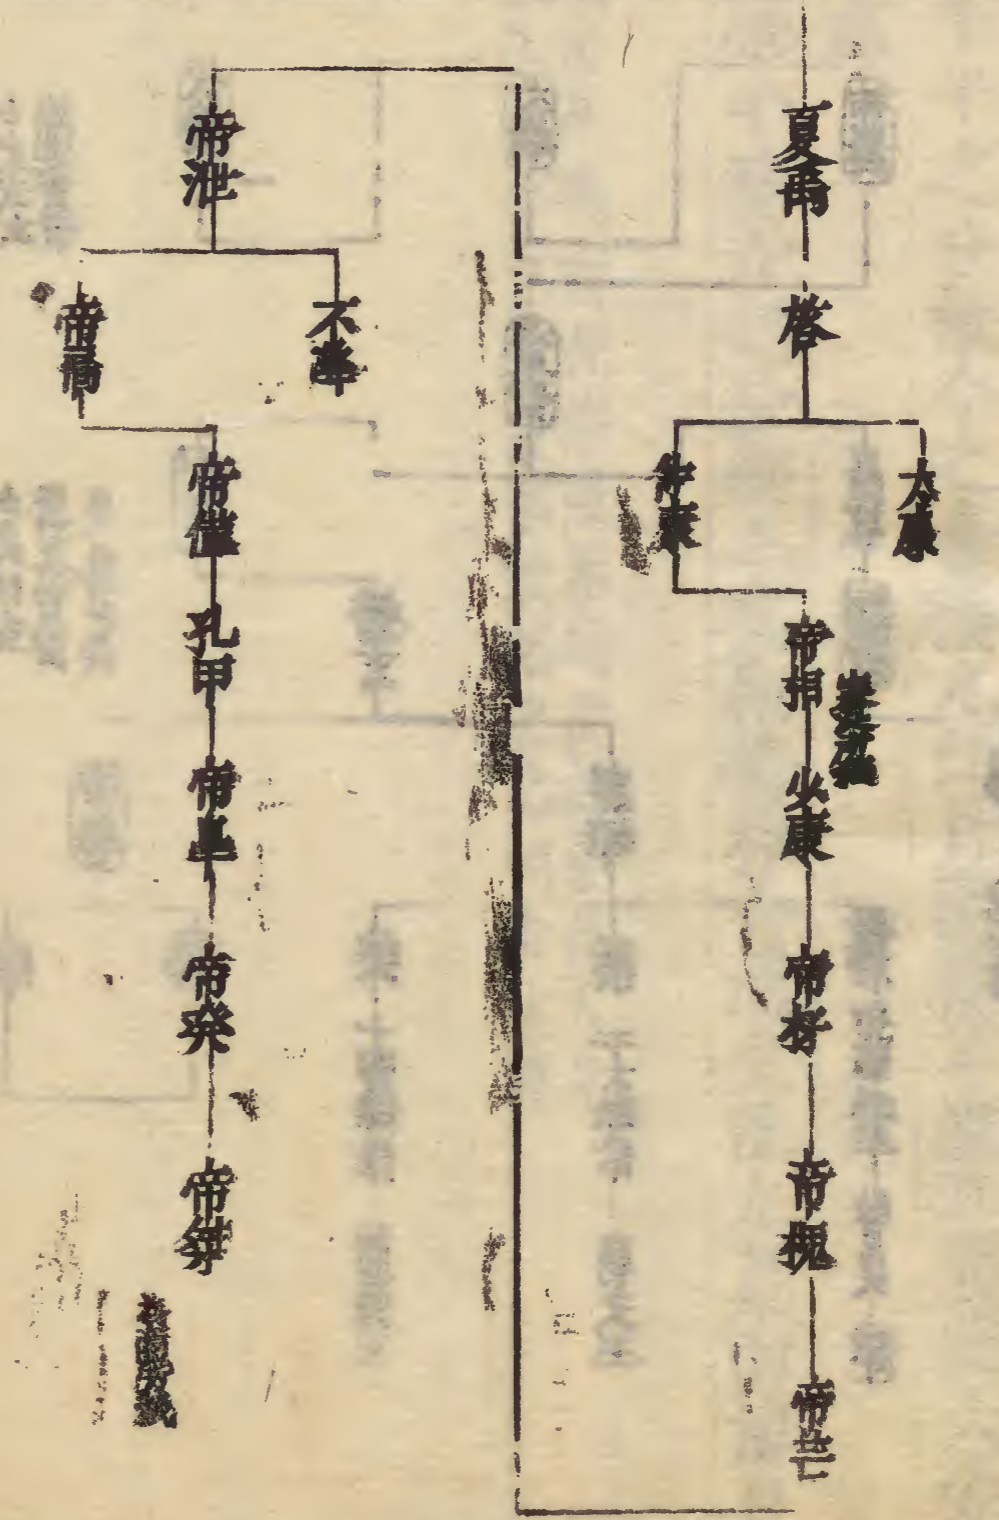 夏禹
啓
太康
仲康
帝相
少康
帝杼
帝槐
帝芒
帝泄
不降
帝扃
帝僅
孔甲
帝皐
帝発
帝桀